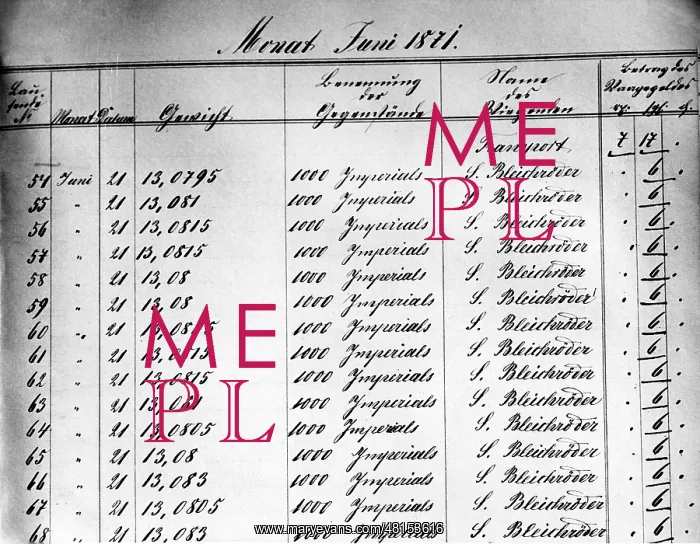 Monat Juni 1871.
Laufende No Monat Datum Gewicht Benennung der Gegenstände Name des Wiegenden Betrag des Waagegeldes
Transport 7 17 .
54 Juni 21 13,0795 1000 Imperials S. Bleichröder . 6 .
55 " 21 13,081 1000 Imperials S. Bleichröder . 6 .
56 " 21 13,0815 1000 Imperials S. Bleichröder . 6 .
57 " 21 13,0815 1000 Imperials S. Bleichröder . 6 .
58 " 21 13,08 1000 Imperials S. Bleichröder . 6 .
59 " 21 13,08 1000 Imperials S. Bleichröder . 6 .
60 " 21 1000 Imperials S. Bleichröder . 6 .
61 " 21 1000 Imperials S. Bleichröder . 6 .
62 " 21 13,0815 1000 Imperials S. Bleichröder . 6 .
63 " 21 13,081 1000 Imperials S. Bleichröder . 6 .
64 " 21 13,0805 1000 Imperials S. Bleichröder . 6 .
65 " 21 13,08 1000 Imperials S. Bleichröder . 6 .
66 " 21 13,083 1000 Imperials S. Bleichröder . 6 .
67 " 21 13,0805 1000 Imperials S. Bleichröder . 6 .
68 " 21 13,083 1000 Imperials S. Bleichröder . 6 .
ME
PL
ME
PL
www.maryevans.com/48153616